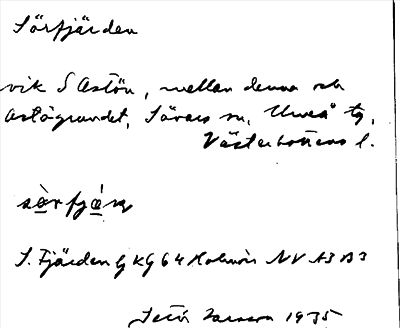 Sörfjärden
vik S Astön, mellan denna och
Astögrundet, Sävars sn, Umeå tg,
Västerbottens l.
S. Fjärden GKG 64 Holmön NV A3 B3
1935